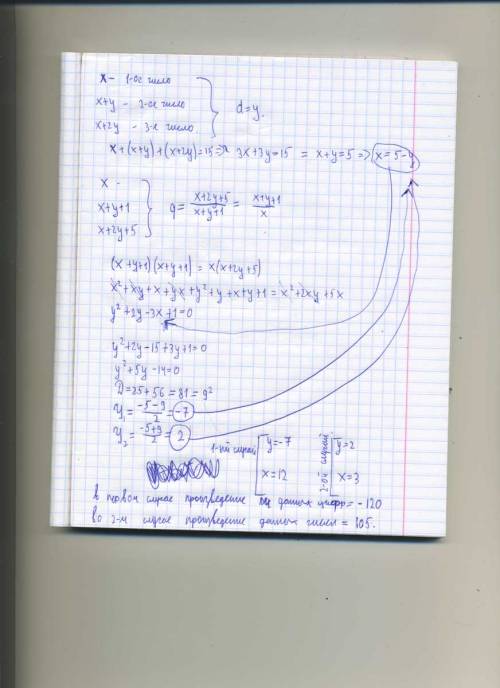 x – 1-ое число
x+y – 2-ое число
x+2y – 3-е число.
d=y.
x+(x+y)+(x+2y)=15 => 3x+3y=15 = x+y=5 => x=5-y
x –
x+y+1
x+2y+5
q = x+2y+5 / x+y+1 = x+y+1 / x
(x+y+1)(x+y+1) = x(x+2y+5)
x²+xy+x+yx+y²+y+x+y+1 = x²+2xy+5x
y²+2y-3x+1=0
y²+2y-15+3y+1=0
y²+5y-14=0
D=25+56=81=9²
y₁ = -5-9 / 2 = -7
y₂ = -5+9 / 2 = 2
1-ый случай [y=-7
x=12
2-ой случай [y=2
x=3
в первом случае произведение данных цифр = -120
во 2-м случае произведение данных чисел = 105.